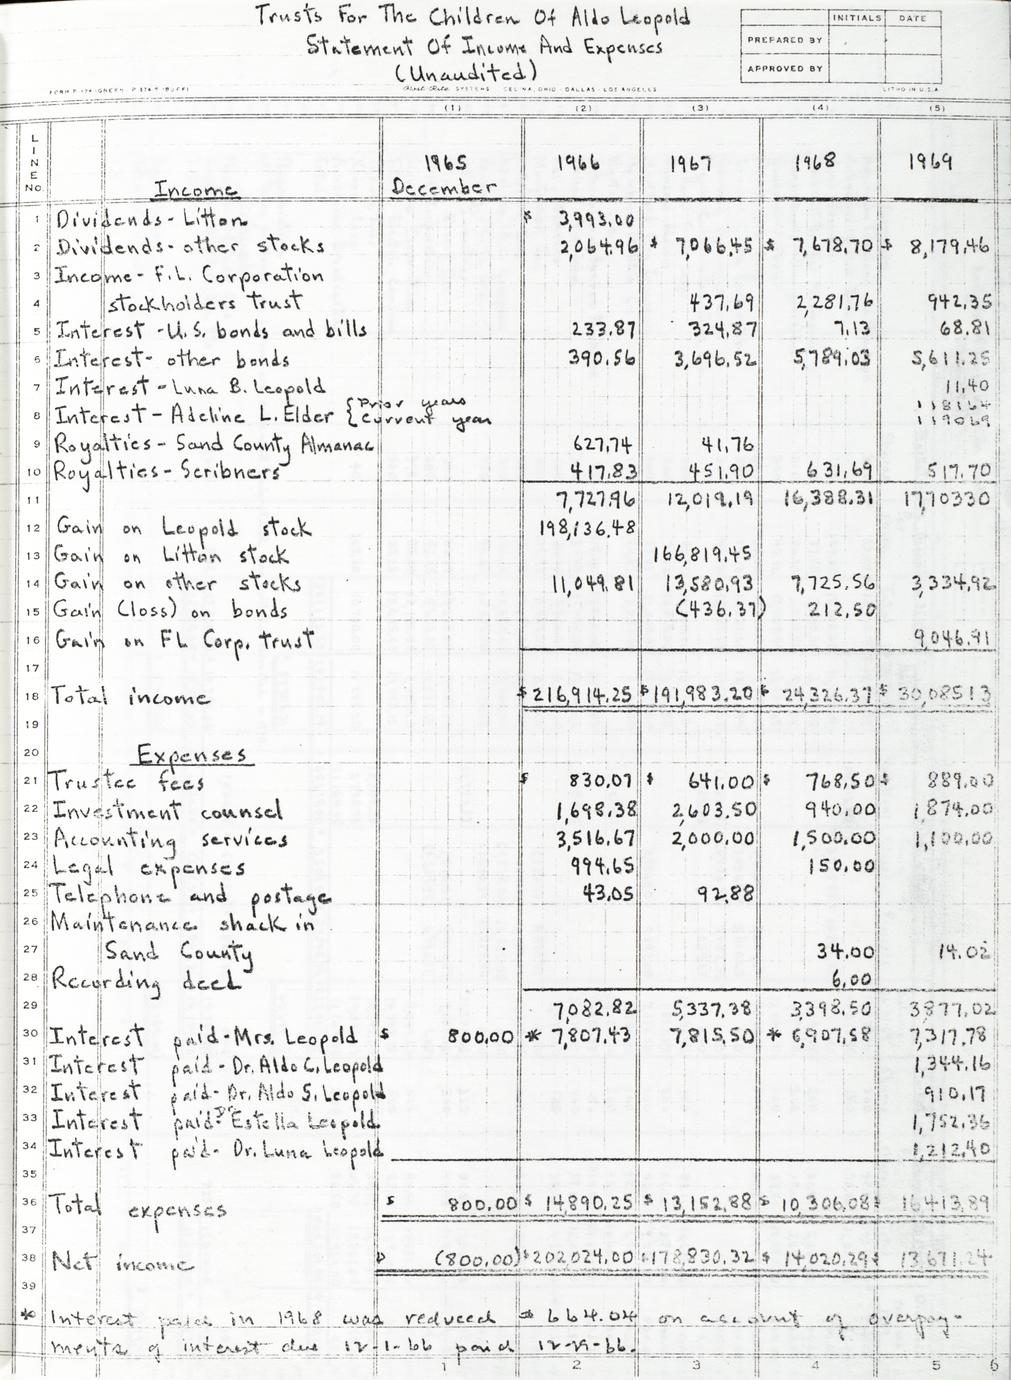 Trusts For The Children Of Aldo Leopold
Statement Of Income And Expenses
(Unaudited)
INITIALS DATE
PREPARED BY
APPROVED BY
SYSTEMS CELINA, OHIO - DALLAS - LOS ANGELES LITHO IN U.S.A.
(1) (2) (3) (4) (5)
LINE NO. Income 1965 December 1966 1967 1968 1969
1 Dividends - Litton $ 3,993.00
2 Dividends - other stocks 2,064.96 $ 7,066.45 $ 7,678.70 $ 8,179.46
3 Income - F.L. Corporation
4 stockholders trust 437.69 2,281.76 942.35
5 Interest - U.S. bonds and bills 233.87 324.87 7.13 68.81
6 Interest - other bonds 390.56 3,696.52 5,789.03 5,611.25
7 Interest - Luna B. Leopold 11.40
8 Interest - Adeline L. Elder { Prior years 1181.64
{ Current year 1190.69
9 Royalties - Sand County Almanac 627.74 41.76
10 Royalties - Scribners 417.83 451.90 631.69 517.70
11 7,727.96 12,019.19 16,388.31 17,703.30
12 Gain on Leopold stock 198,136.48
13 Gain on Litton stock 166,819.45
14 Gain on other stocks 11,049.81 13,580.93 7,725.56 3,334.92
15 Gain (loss) on bonds (436.37) 212.50
16 Gain on FL Corp. trust 9,046.91
17
18 Total income $ 216,914.25 $ 191,983.20 $ 24,326.37 $ 30,085.13
19
20 Expenses
21 Trustee fees $ 830.07 $ 641.00 $ 768.50 $ 889.00
22 Investment counsel 1,698.38 2,603.50 940.00 1,874.00
23 Accounting services 3,516.67 2,000.00 1,500.00 1,100.00
24 Legal expenses 994.65 150.00
25 Telephone and postage 43.05 92.88
26 Maintenance shack in
27 Sand County 34.00 14.02
28 Recording deed 6.00
29 7,082.82 5,337.38 3,398.50 3,877.02
30 Interest paid - Mrs. Leopold $ 800.00 * 7,807.43 7,815.50 * 6,907.58 7,317.78
31 Interest paid - Dr. Aldo C. Leopold 1,344.16
32 Interest paid - Dr. Aldo S. Leopold 910.17
33 Interest paid - Dr Estella Leopold 1,752.36
34 Interest paid - Dr. Luna Leopold 1,212.40
35
36 Total expenses $ 800.00 $ 14,890.25 $ 13,152.88 $ 10,306.08 $ 16,413.89
37
38 Net income $ (800.00) $ 202,024.00 $ 178,830.32 $ 14,020.29 $ 13,671.24
39
* Interest paid in 1968 was reduced $ 664.04 on account of overpay-
ments of interest due 12-1-66 paid 12-29-66.
1 2 3 4 5 6